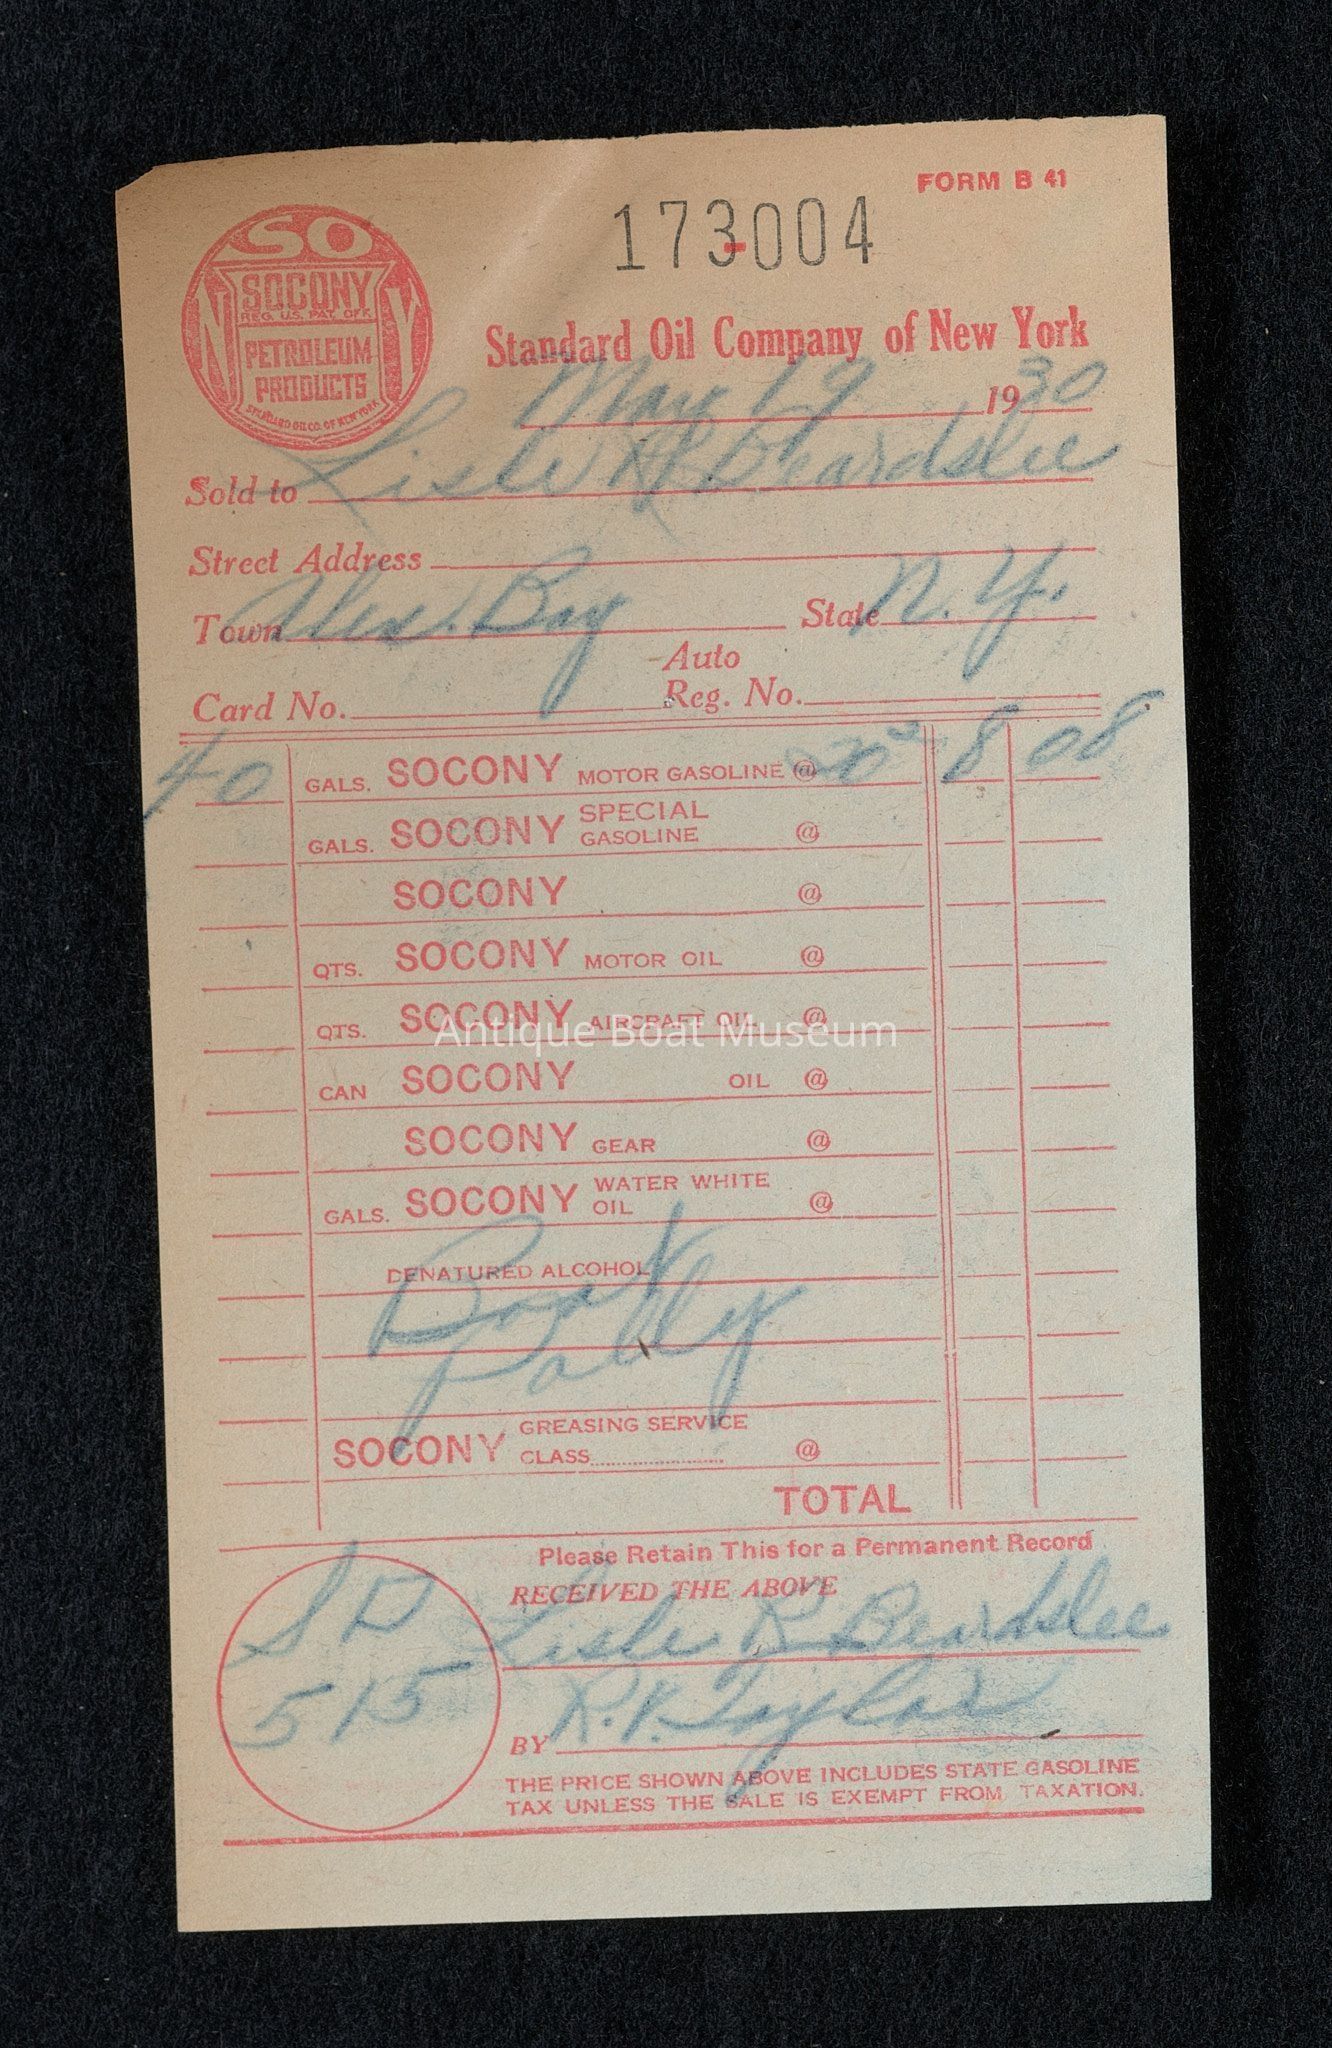 FORM B 41
173004
SO NY
SOCONY
REG. U.S. PAT. OFF.
PETROLEUM
PRODUCTS
STANDARD OIL CO. OF NEW YORK
Standard Oil Company of New York
May 19 1930
Sold to Lisle R Beardslee
Street Address
Town Alex. Bay State N.Y.
Auto
Card No. Reg. No.
40 GALS. SOCONY MOTOR GASOLINE @ 8 08
GALS. SOCONY SPECIAL GASOLINE @
SOCONY @
QTS. SOCONY MOTOR OIL @
QTS. SOCONY AIRCRAFT OIL @
CAN SOCONY OIL @
SOCONY GEAR @
GALS. SOCONY WATER WHITE OIL @
DENATURED ALCOHOL
Boat
Polly
SOCONY GREASING SERVICE CLASS @
TOTAL
Please Retain This for a Permanent Record
RECEIVED THE ABOVE
SD
515
Lisle R Beardslee
BY R.V. Taylor
THE PRICE SHOWN ABOVE INCLUDES STATE GASOLINE
TAX UNLESS THE SALE IS EXEMPT FROM TAXATION.
Antique Boat Museum